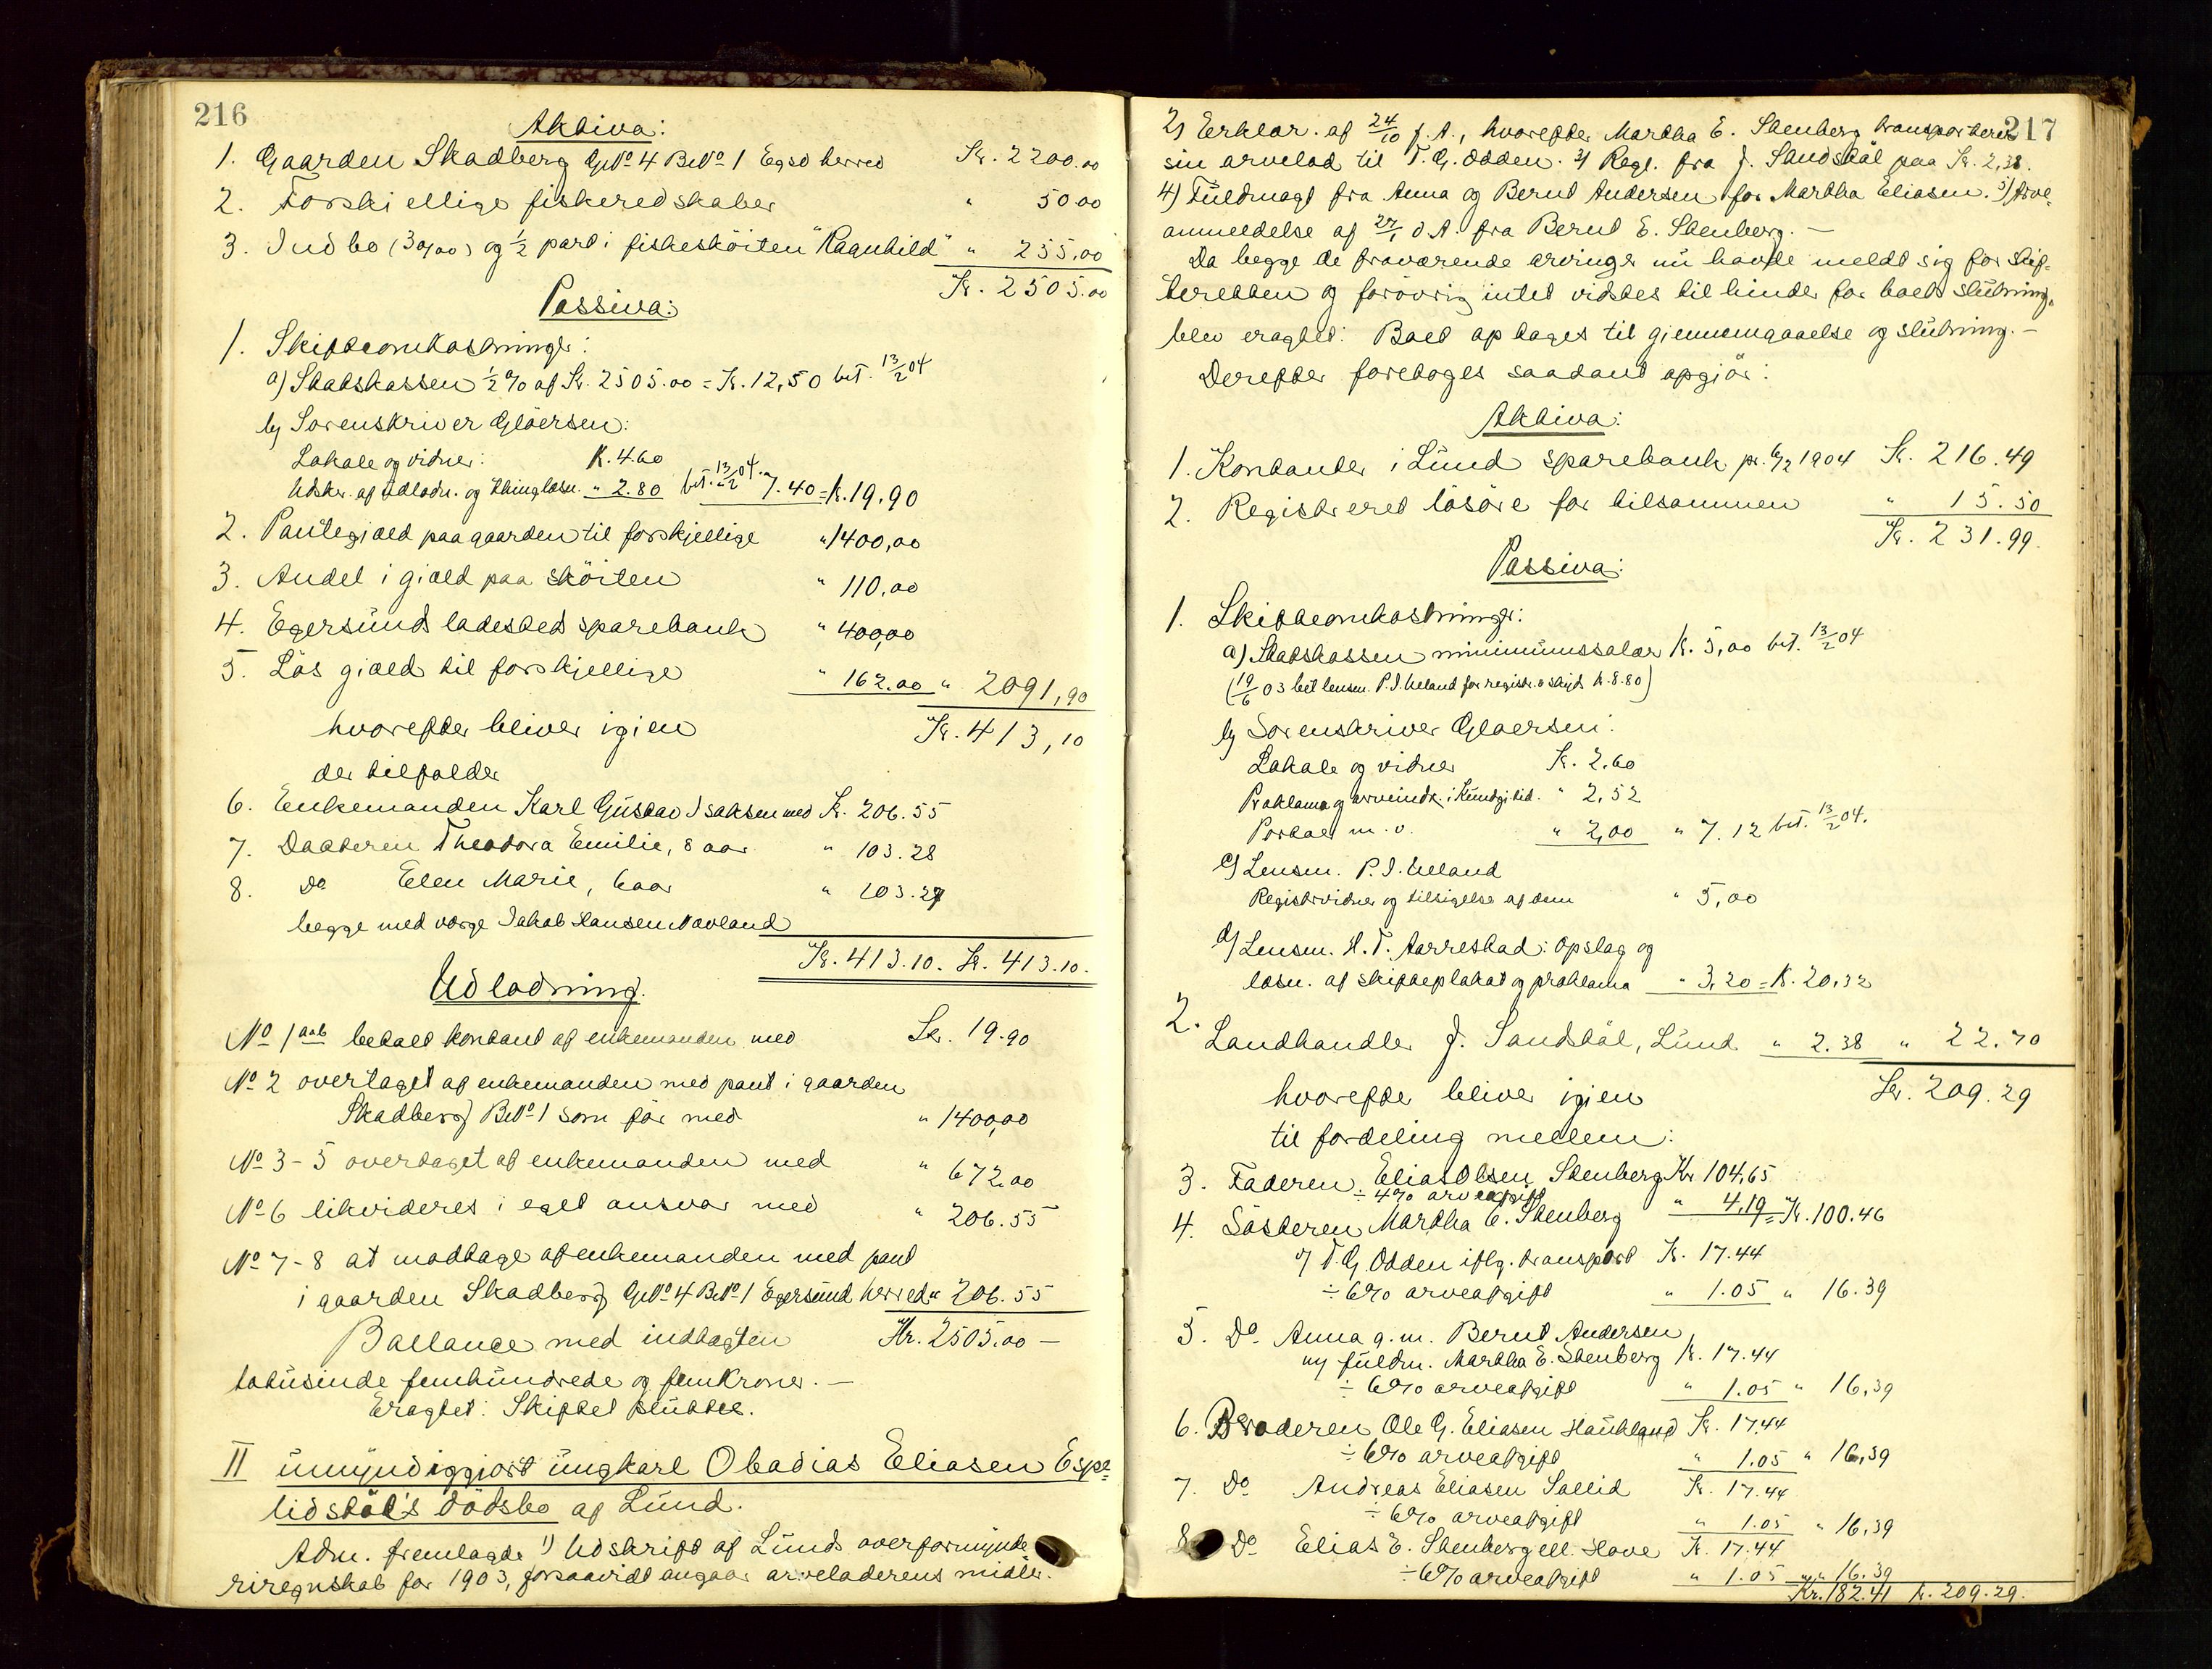 216
Aktiva:
1. Gaarden Skadberg GNo 4 BNo 1 Egsd herred Kr. 2200.00
2. Forskjellige fiskeredskaber " 50.00
3. Indbo (30,00) og 1/2 part i fiskeskøiten "Ragnhild" " 255,00
Kr. 2505.00
Passiva:
1. Skifteomkostninger:
a) Statskassen 1/2 % af Kr. 2505.00 = Kr. 12,50 bet. 13/2 04
b) Sorenskriver Gløersen:
Lokale og vidner: K. 4.60
Udskr. af udlodn. og thinglæsn. " 2.80 bet. 13/2 04. " 7.40 = K. 19,90
2. Pantegjæld paa gaarden til forskjellige " 1400,00
3. Andel i gjæld paa skøiten " 110,00
4. Egersunds ladesteds sparebank " 400,00
5. Løs gjæld til forskjellige " 162.00 " 2091,90
hvorefter bliver igjen Kr. 413,10
der tilfalder
6. Enkemanden Karl Gustav Isaksen med Kr. 206.55
7. Datteren Theodora Emilie, 8 aar " 103.28
8. Do Elen Marie, 6 aar " 103.27
begge med værge Jakob Hansen Navland
Kr. 413.10. Kr. 413.10.
Udlodning.
No 1 a & b betalt kontant af enkemanden med Kr. 19.90
No 2 overtaget af enkemanden med pant i gaarden
Skadberg BNo 1 som før med " 1400,00
No 3-5 overtaget af enkemanden med " 672.00
No 6 likvideres i eget ansvar med " 206.55
No 7-8 at modtage af enkemanden med pant
i gaarden Skadberg GNo 4 BNo 1 Egersund herred " 206.55
Ballance med indtægten Kr. 2505.00 —
totusinde femhundrede og fem Kroner. —
Eragtet: Skiftet sluttet.
II umyndiggjort ungkarl Obadias Eliasen Espe=
lidstøl's dødsbo af Lund.
Adm. fremlagde 1) Udskrift af Lunds overformynde=
riregnskab for 1903, forsaavidt angaar arveladerens midler.
217
2) Erklær. af 24/10 f. A., hvorefter Martha E. Stenberg transporterer
sin arvelod til T. G. Odden. 3) Regl. fra J. Sandstøl paa Kr. 2,38.
4) Fuldmagt fra Anna og Bernt Andersen for Martha Eliasen. 5) Arve=
anmeldelse af 27/1 d. A. fra Bernt E. Stenberg. —
Da begge de fraværende arvinger nu havde meldt sig for skif=
teretten og forøvrig intet vidstes til hinder for boets slutning,
blev eragtet: Boet optages til gjennemgaaelse og slutning. —
Derefter foretoges saadant opgjør:
Aktiva:
1. Kontanter i Lund sparebank pr. 6/2 1904 Kr. 216.49
2. Registreret løsøre for tilsammen " 15.50
Kr. 231.99.
Passiva:
1. Skifteomkostninger:
a) Statskassen minimumssalær K. 5,00 bet. 13/2 04
(19/6 03 bet lensm. P. I. Ueland for registr. o skyds K. 8.80)
b) Sorenskriver Gløersen:
Lokale og vidner Kr. 2.60
Proklama og arveindk. i Kundg.tid. " 2,52
Portoer m. v. " 2,00 " 7.12 bet. 13/2 04.
c) Lensm. P. I. Ueland
Registrvidner og tilsigelse af dem " 5,00
d) Lensm. H. T. Aarrestad: Opslag og
læsn. af skifteplakat og proklama " 3,20 = K. 20,32
2. Landhandler J. Sandstøl, Lund " 2.38 " 22.70
hvorefter bliver igjen Kr. 209.29
til fordeling mellem:
3. Faderen Elias Olsen Stenberg Kr 104,65
÷ 4% arveafgift " 4,19 = Kr. 100.46
4. Søsteren Martha E. Stenberg
v/ T. G. Odden iflg. transport Kr. 17.44
÷ 6% arveafgift " 1.05 " 16.39
5. Do. Anna g. m. Bernt Andersen
v/ fuldm. Martha E. Stenberg K. 17.44
÷ 6% arveafgift " 1.05 " 16,39
6. Broderen Ole G. Eliasen Haukland Kr. 17.44
÷ 6% arveafgift " 1.05 " 16,39
7. Do Andreas Eliasen Sallid Kr. 17.44
÷ 6% arveafgift " 1.05 " 16,39
8. Do Elias E. Stenberg ell. Hove Kr. 17.44
÷ 6% arveafgift " 1.05 " 16.39
Kr. 182.41 K. 209.29.